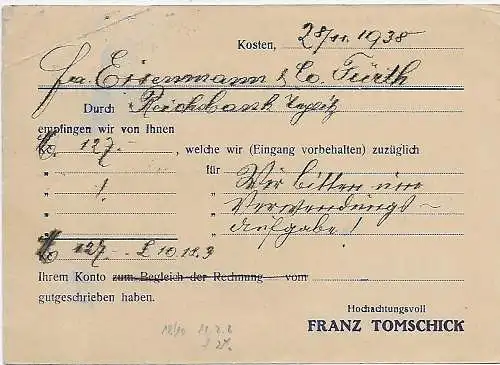 Kosten, 28/11. 1938
Fa. Eisenmann & Co. Fürth
Durch Reichsbank
empfingen wir von Ihnen
127.- , welche wir (Eingang vorbehalten) zuzüglich
" " für Wir bitten um
" ! " Verwendungs-
" " aufgabe!
127.- £ 10.19.3
Ihrem Konto zum Begleich der Rechnung vom
gutgeschrieben haben.
Hochachtungsvoll
FRANZ TOMSCHICK